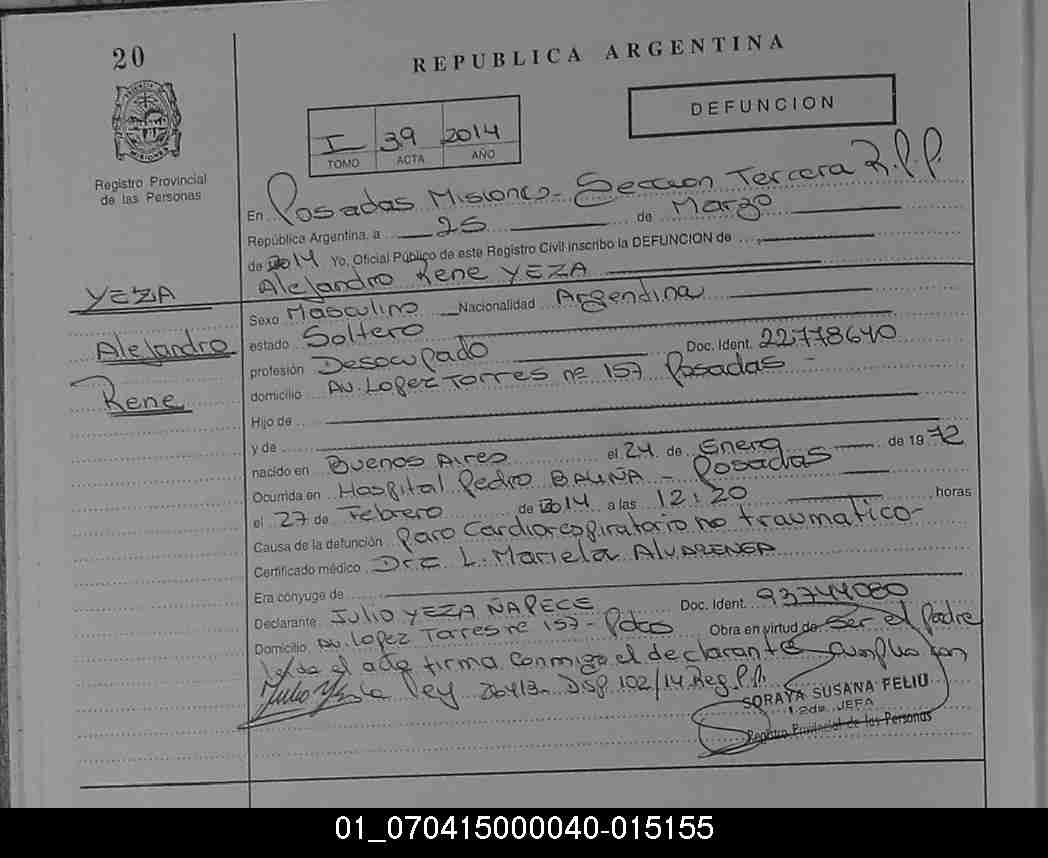 20
REPUBLICA ARGENTINA
DEFUNCION
I 39 2014
TOMO ACTA AÑO
Registro Provincial
de las Personas
En Posadas Misiones - Seccion Tercera R.P.P.
República Argentina, a 25 de Marzo
de 2014 Yo, Oficial Público de este Registro Civil inscribo la DEFUNCION de
Alejandro Rene YEZA
YEZA
Alejandro
Rene
Sexo Masculino Nacionalidad Argentina
estado Soltero
profesión Desocupado Doc. Ident. 22778640
domicilio Av. Lopez Torres nº 157 Posadas -
Hijo de
y de
nacido en Buenos Aires el 24 de Enero de 1972
Ocurrida en Hospital Pedro BALIÑA - Posadas
el 27 de Febrero de 2014 a las 12:20 horas
Causa de la defunción Paro Cardiorespiratorio no traumatico-
Certificado médico Dra. L. Mariela ALVARENGA
Era cónyuge de
Declarante Julio YEZA ÑAPECE Doc. Ident. 93744080
Domicilio Av. Lopez Torres nº 157 - Pdas Obra en virtud de Ser el Padre
leída el acta firma conmigo el declarante cumplio con
la ley 26413 - Disp. 102/14 Reg. P.P.
SORAYA SUSANA FELIU
2da. JEFA
Registro Provincial de las Personas
01_070415000040-015155